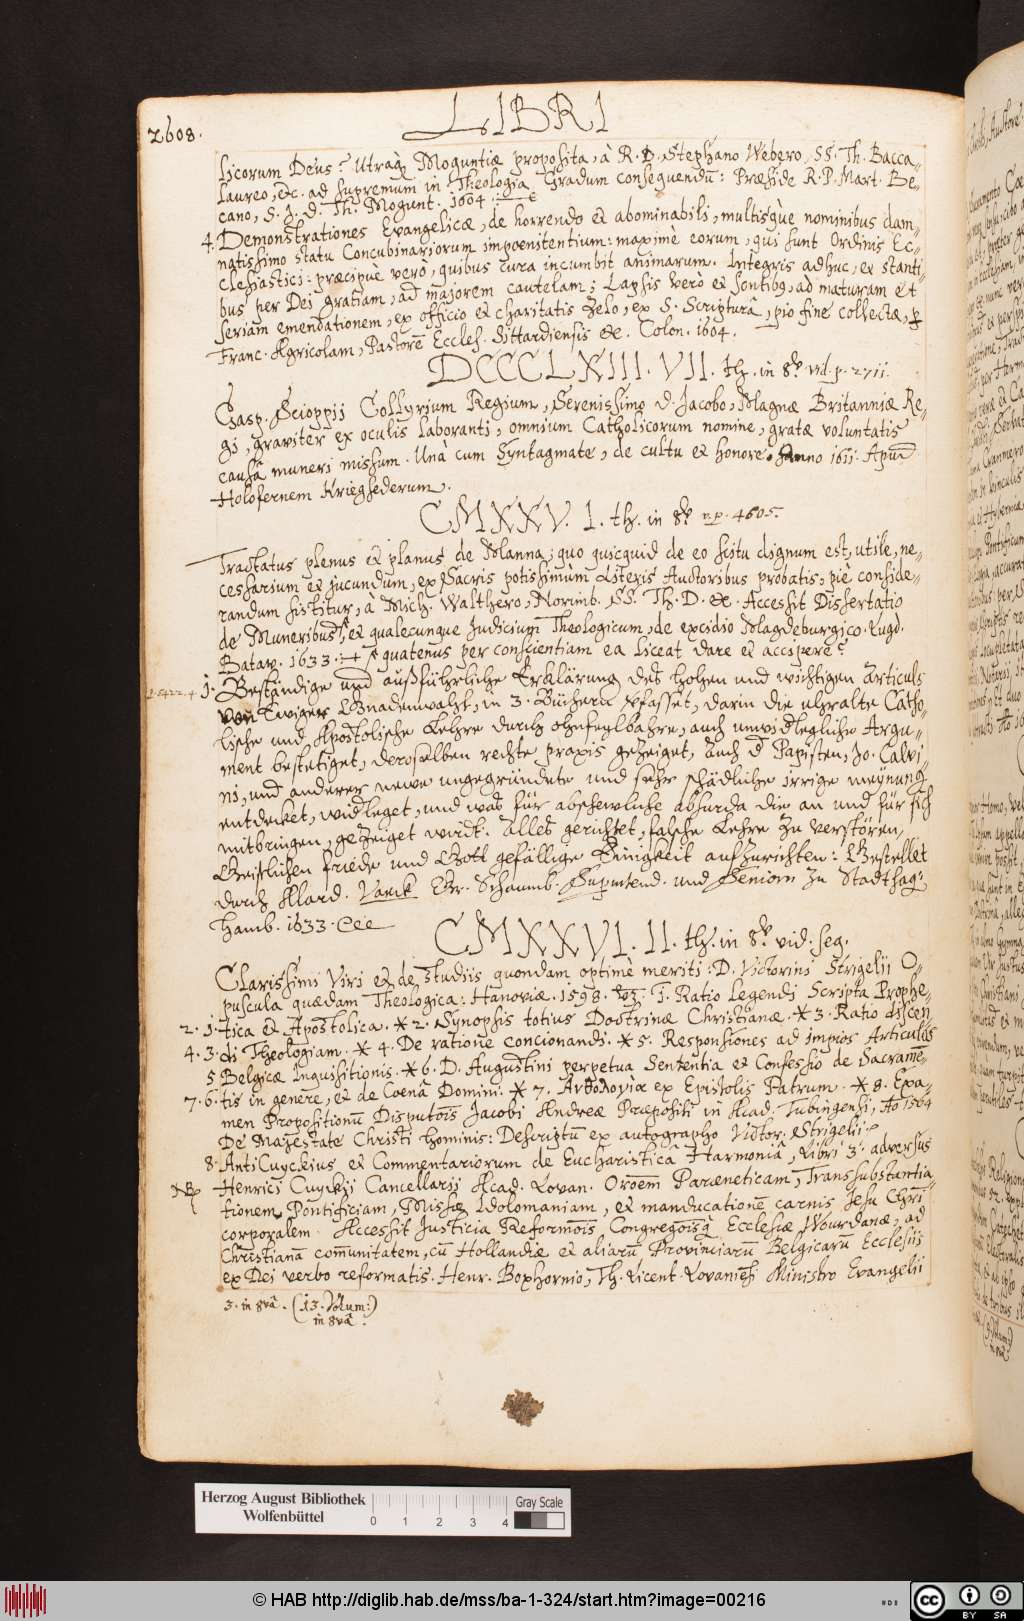 2608.
LIBRI
licorum Deus? Utraq; Moguntiæ proposita, à R. D. Stephano Webero, SS. Th. Bacca-
laureo, etc. ad supremum in Theologia Gradum consequendū: Præside R. P. Mart. Be-
cano, S. J. D. Th. Mogunt. 1604.
4. Demonstrationes Evangelicæ, de horrendo et abominabili, multisque nominibus dam-
natissimo statu Concubinariorum impœnitentium: maximè eorum, qui sunt Ordinis Ec-
clesiastici: præcipue verò, quibus cura incumbit animarum. Integris adhuc, et stanti-
bus per Dei gratiam, ad majorem cautelam; Lapsis verò et sontibg, ad maturam et
seriam emendationem, ex officio et charitatis zelo, ex S. Scripturâ, pio fine collectæ, p
Franc. Agricolam, Pastorē Eccles. Sittardiensis &c. Colon. 1604.
DCCCLXIII. VII. th. in 8º. vid. p. 2711.
Gasp. Scioppij Collyrium Regium, Serenissimo D. Jacobo, Magnæ Britanniæ Re-
gi, graviter ex oculis laboranti, omnium Catholicorum nomine, gratæ voluntatis
causâ muneri missum. Unà cum Syntagmate, de cultu et honore. Anno 1611. Apud
Holofernem Kriegsederum.
CMXXV. I. th. in 8º. p. 4605.
Tractatus plenus et planus de Manna; quo quicquid de eo scitu dignum est, utile, ne-
cessarium et jucundum, ex Sacris potissimùm Literis Auctoribus probatis, piè conside-
randum sistitur, à Mich. Walthero, Norimb. SS. Th. D. &c. Accessit Dissertatio
de Muneribus, et qualecunque Judicium Theologicum, de excidio Magdeburgico. Lugd.
Batav. 1633. quatenus per conscientiam ea liceat dare et accipere?
p. 5422. 4. 1. Beständige und außführliche Erklärung deß hohen und wichtigen Articuls
von Ewiger Gnadenwahl, in 3. Büchern verfasset, darin die uhralte Catho-
lische und Apostolische Lehre durch ohnfeylbahre, auch unwidleglich Argu-
ment bestetiget, deroselben rechte praxis gezeiget, auch d Papisten, Jo. Calvi-
ni, und anderer newe ungegründete und sehr schädliche irrige meynung
entdecket, widleget, und was für abschewliche absurda die an und für sich
mitbringen, gezeiget wirdt. Alles gerichtet, falsche Lehre zu verstören,
Geistlichen friede und Gott gefällige Einigkeit auffzurichten: Gestellet
durch Alard. Vaeck Gr. Schaumb. Superintend. und Seniorn zu Stadthag.
Hamb. 1633.
CMXXVI. II. th. in 8º. vid. seq.
Clarissimi Viri et de studiis quondam optimè meriti: D. Victorini Strigelii O-
puscula quædam Theologica: Hanoviæ. 1598. vz: 1. Ratio legendi Scripta Prophe-
2. 1. tica et Apostolica. * 2. Synopsis totius Doctrinæ Christianæ. * 3. Ratio discen
4. 3. di Theologiam. * 4. De ratione concionandi. * 5. Responsiones ad impios Articulos
5 Belgicæ Inquisitionis. * 6. D. Augustini perpetua Sententia et Confessio de Sacramē-
7. 6. tis in genere, et de Coenâ Domini. * 7. Ὀρθοδοξία ex Epistolis Patrum. * 8. Exa-
men Propositionū Disputōis Jacobi Andreæ Præpositi in Acad. Tubingensi, Aō 1564
De Majestate Christi hominis: Descriptū ex autographo Victor. Strigelii.
8. AntiCuyckius et Commentariorum de Eucharisticâ Harmoniâ, Libri 3. adversus
NB Henrici Cuyckij Cancellarij Acad. Lovan. Orōem Paræneticam, Transsubstantia-
tionem Pontificiam, Missæ Idolomaniam, et manducationē carnis Jesu Chri
corporalem. Accessit Justicia Reformōis Congregōisq; Ecclesiæ Wourdanæ, ad
Christianā com̄unitatem, cū Hollandiæ et aliarū Provinciarū Belgicarū Ecclesiis
ex Dei verbo reformatis. Henr. Boxhornio, Th. Licent. Lovaniēsi Ministro Evangelii
3. in 8vâ. (13. Volum:)
in 8vâ.
Herzog August Bibliothek
Wolfenbüttel
0 1 2 3 4
Gray Scale
© HAB http://diglib.hab.de/mss/ba-1-324/start.htm?image=00216
cc BY SA